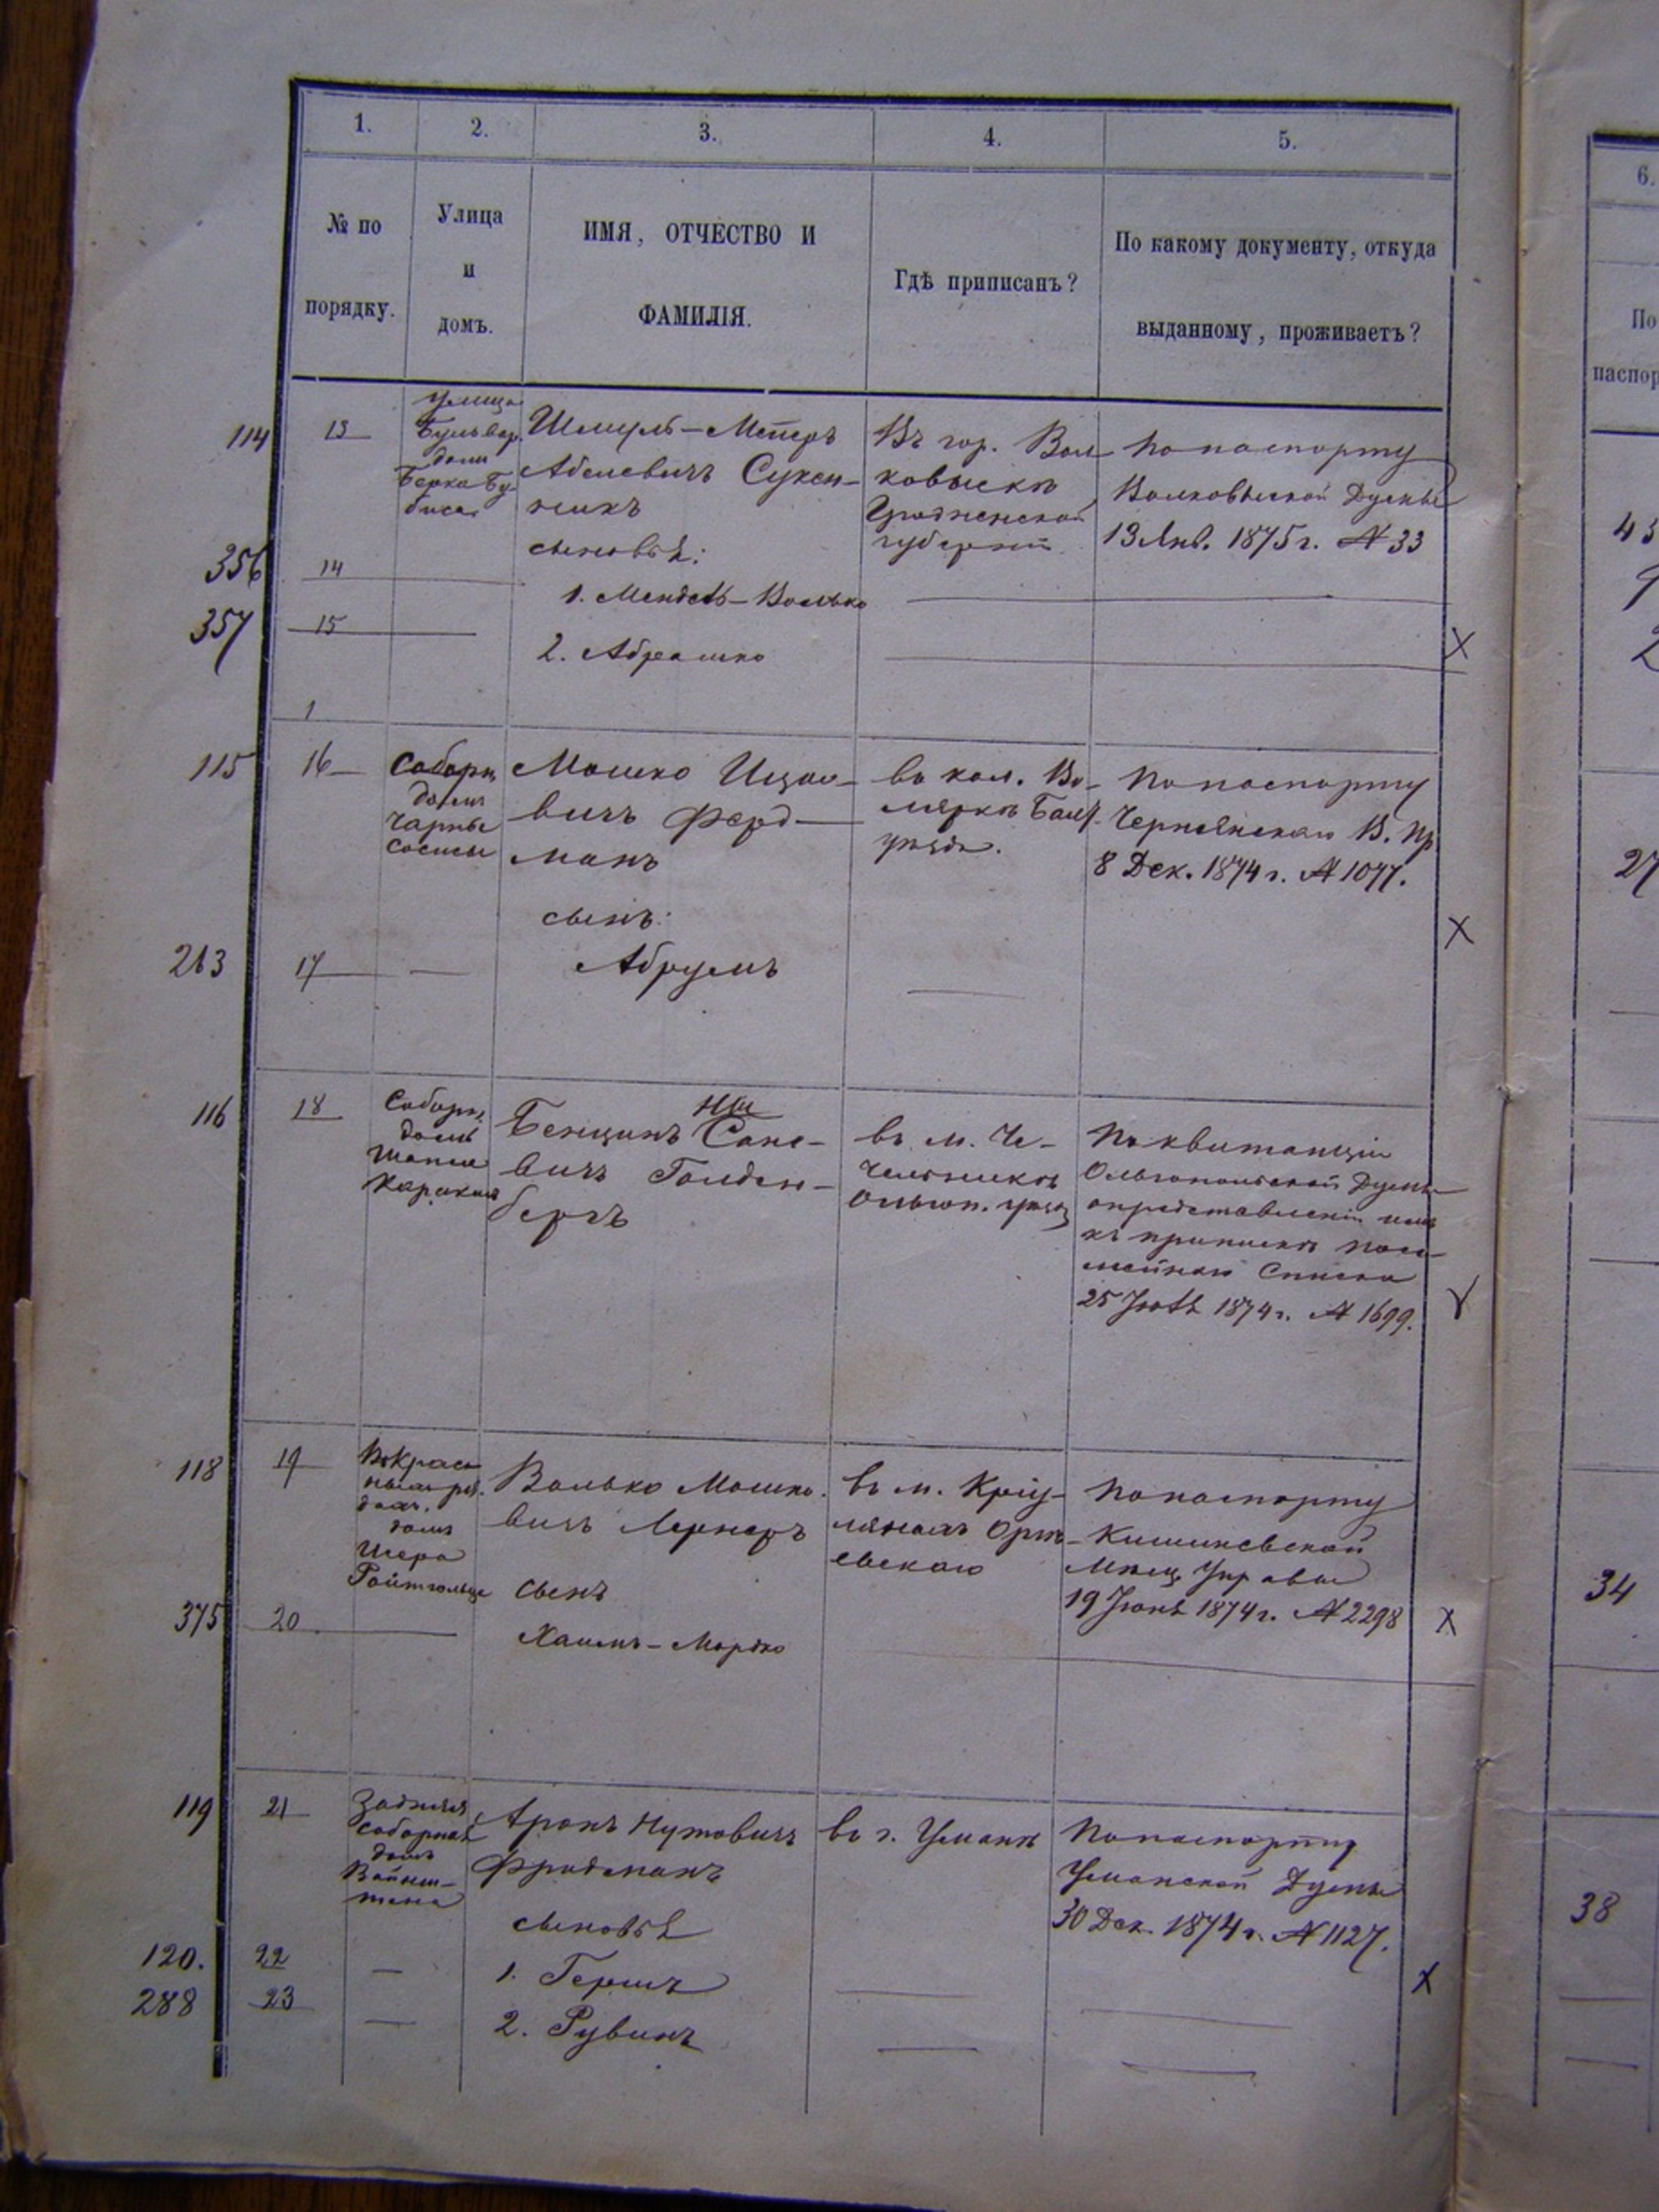 1. 2. 3. 4. 5.
№ по порядку.
Улица и домъ.
ИМЯ, ОТЧЕСТВО И
ФАМИЛІЯ.
Гдѣ приписанъ?
По какому документу, откуда
выданному, проживаетъ?
6.
По
паспор
114
13
улица
Бульвар.
домъ
Берка Бу-
Шмуль-Мейеръ
Абелевичъ Сукен-
никъ
Въ гор. Вол-
ковыскѣ
Гродненской
губерніи
По паспорту
Волковыской Думы
13 Янв. 1875 г. № 33
сыновья:
356
14
1. Мендель-Волько
357
15
2. Абрашко
X
1
115
16
Соборн.
домъ
Чарны
Сосисы
Мошко Ицко-
вичъ Ферд-
манъ
въ кол. Во-
ляркѣ Балт.
уѣзда.
По паспорту
Чернянскаго В. Пр
8 Дек. 1874 г. № 1077.
сынъ:
X
213
17
Абрумъ
116
18
Соборн.
домъ
Бенционъ Сане-
вичъ Голден-
бергъ
въ м. Че-
чельникѣ
Ольгоп. уѣзд
По квитанціи
Ольгопольской Думы
о представленіи имъ
къ припискѣ посе-
мейнаго Списка
25 Іюля 1874 г. № 1699.
118
19
Въ Крас-
ныхъ ря-
дахъ.
домъ
Шера
Волько Мошко-
вичъ Лернеръ
въ м. Кріу-
лянахъ Орге-
евскаго
По паспорту
Кишиневской
Мѣщ. Управы
19 Іюня 1874 г. № 2298
X
сынъ
375
20
Хаимъ-Мордко
119
21
Задняя
Соборная
домъ
Вайнш-
тена
Аронъ Нутовичъ
Фрадманъ
въ г. Умани
По паспорту
Уманской Думы
30 Дек. 1874 г. № 1127.
сыновья
120.
22
1. Гершъ
X
288
23
2. Рувинъ
27
34
38